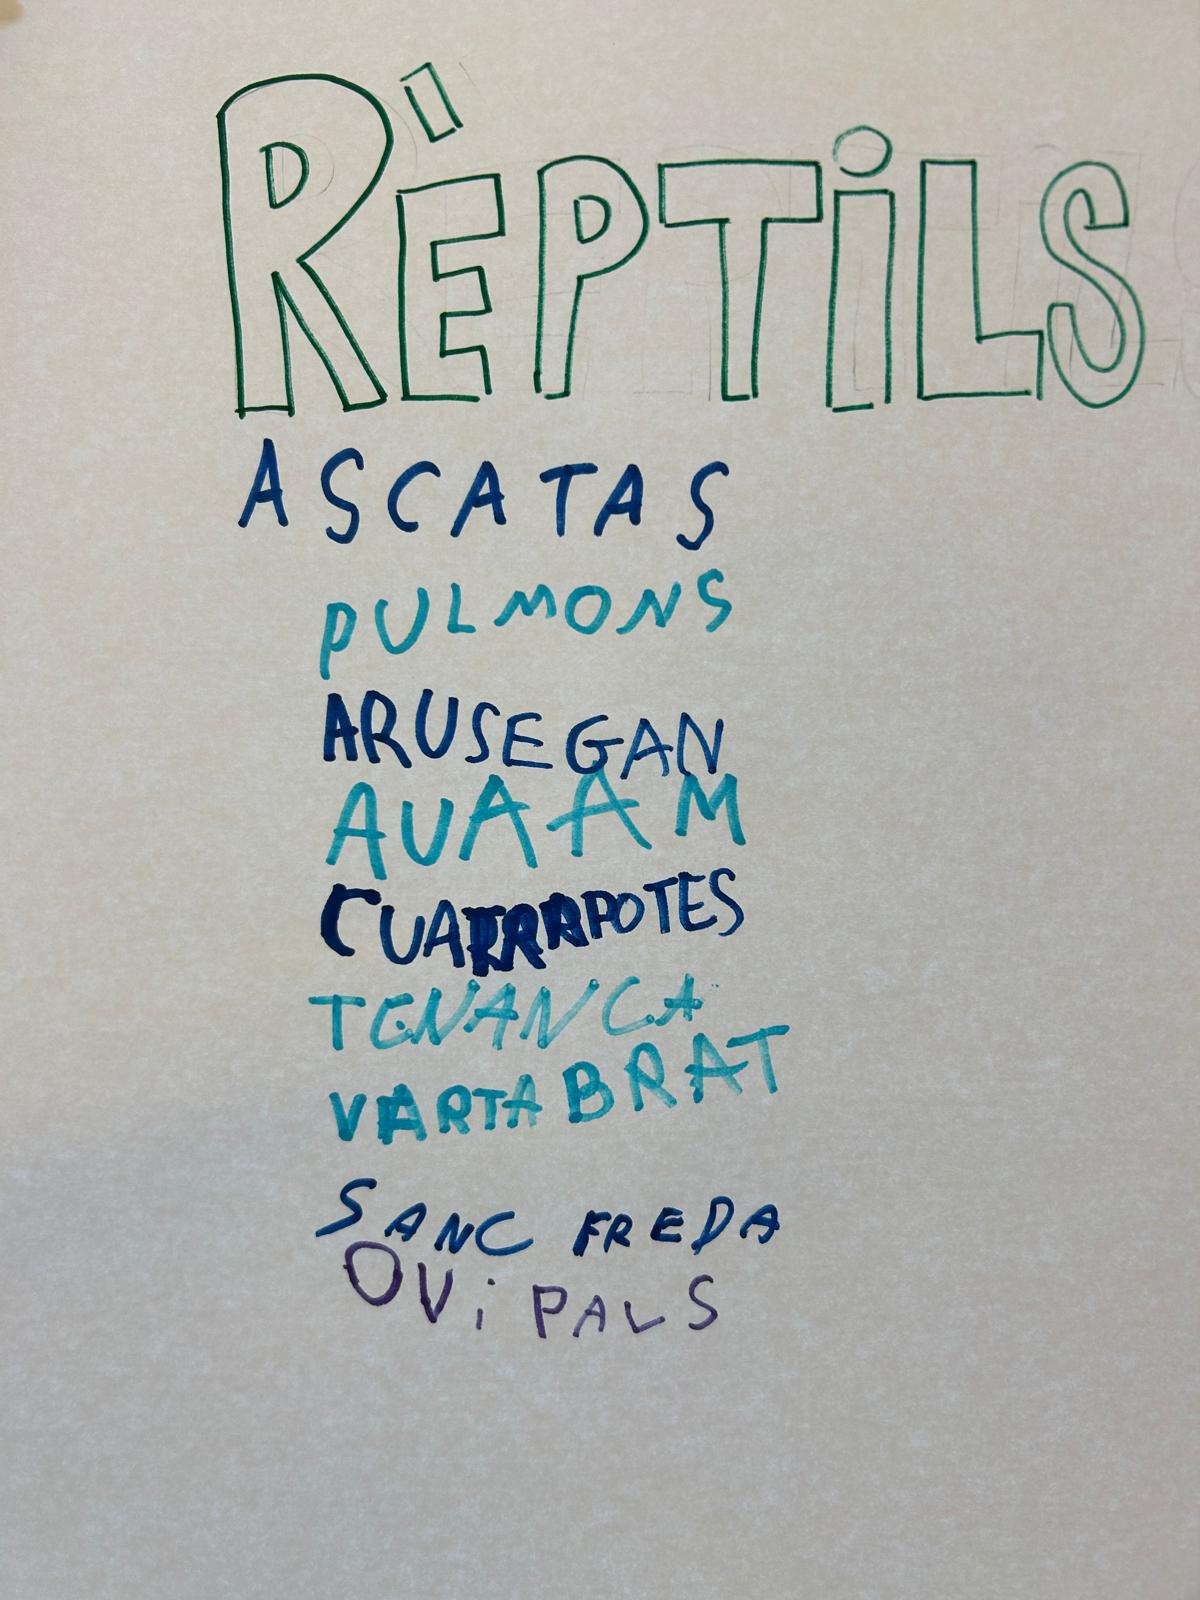 RÈPTiLS
ASCATAS
PULMONS
ARUSEGAN
AUAAM
POTES
TENANCA
VARTABRAT
SANC FREDA
OViPALS